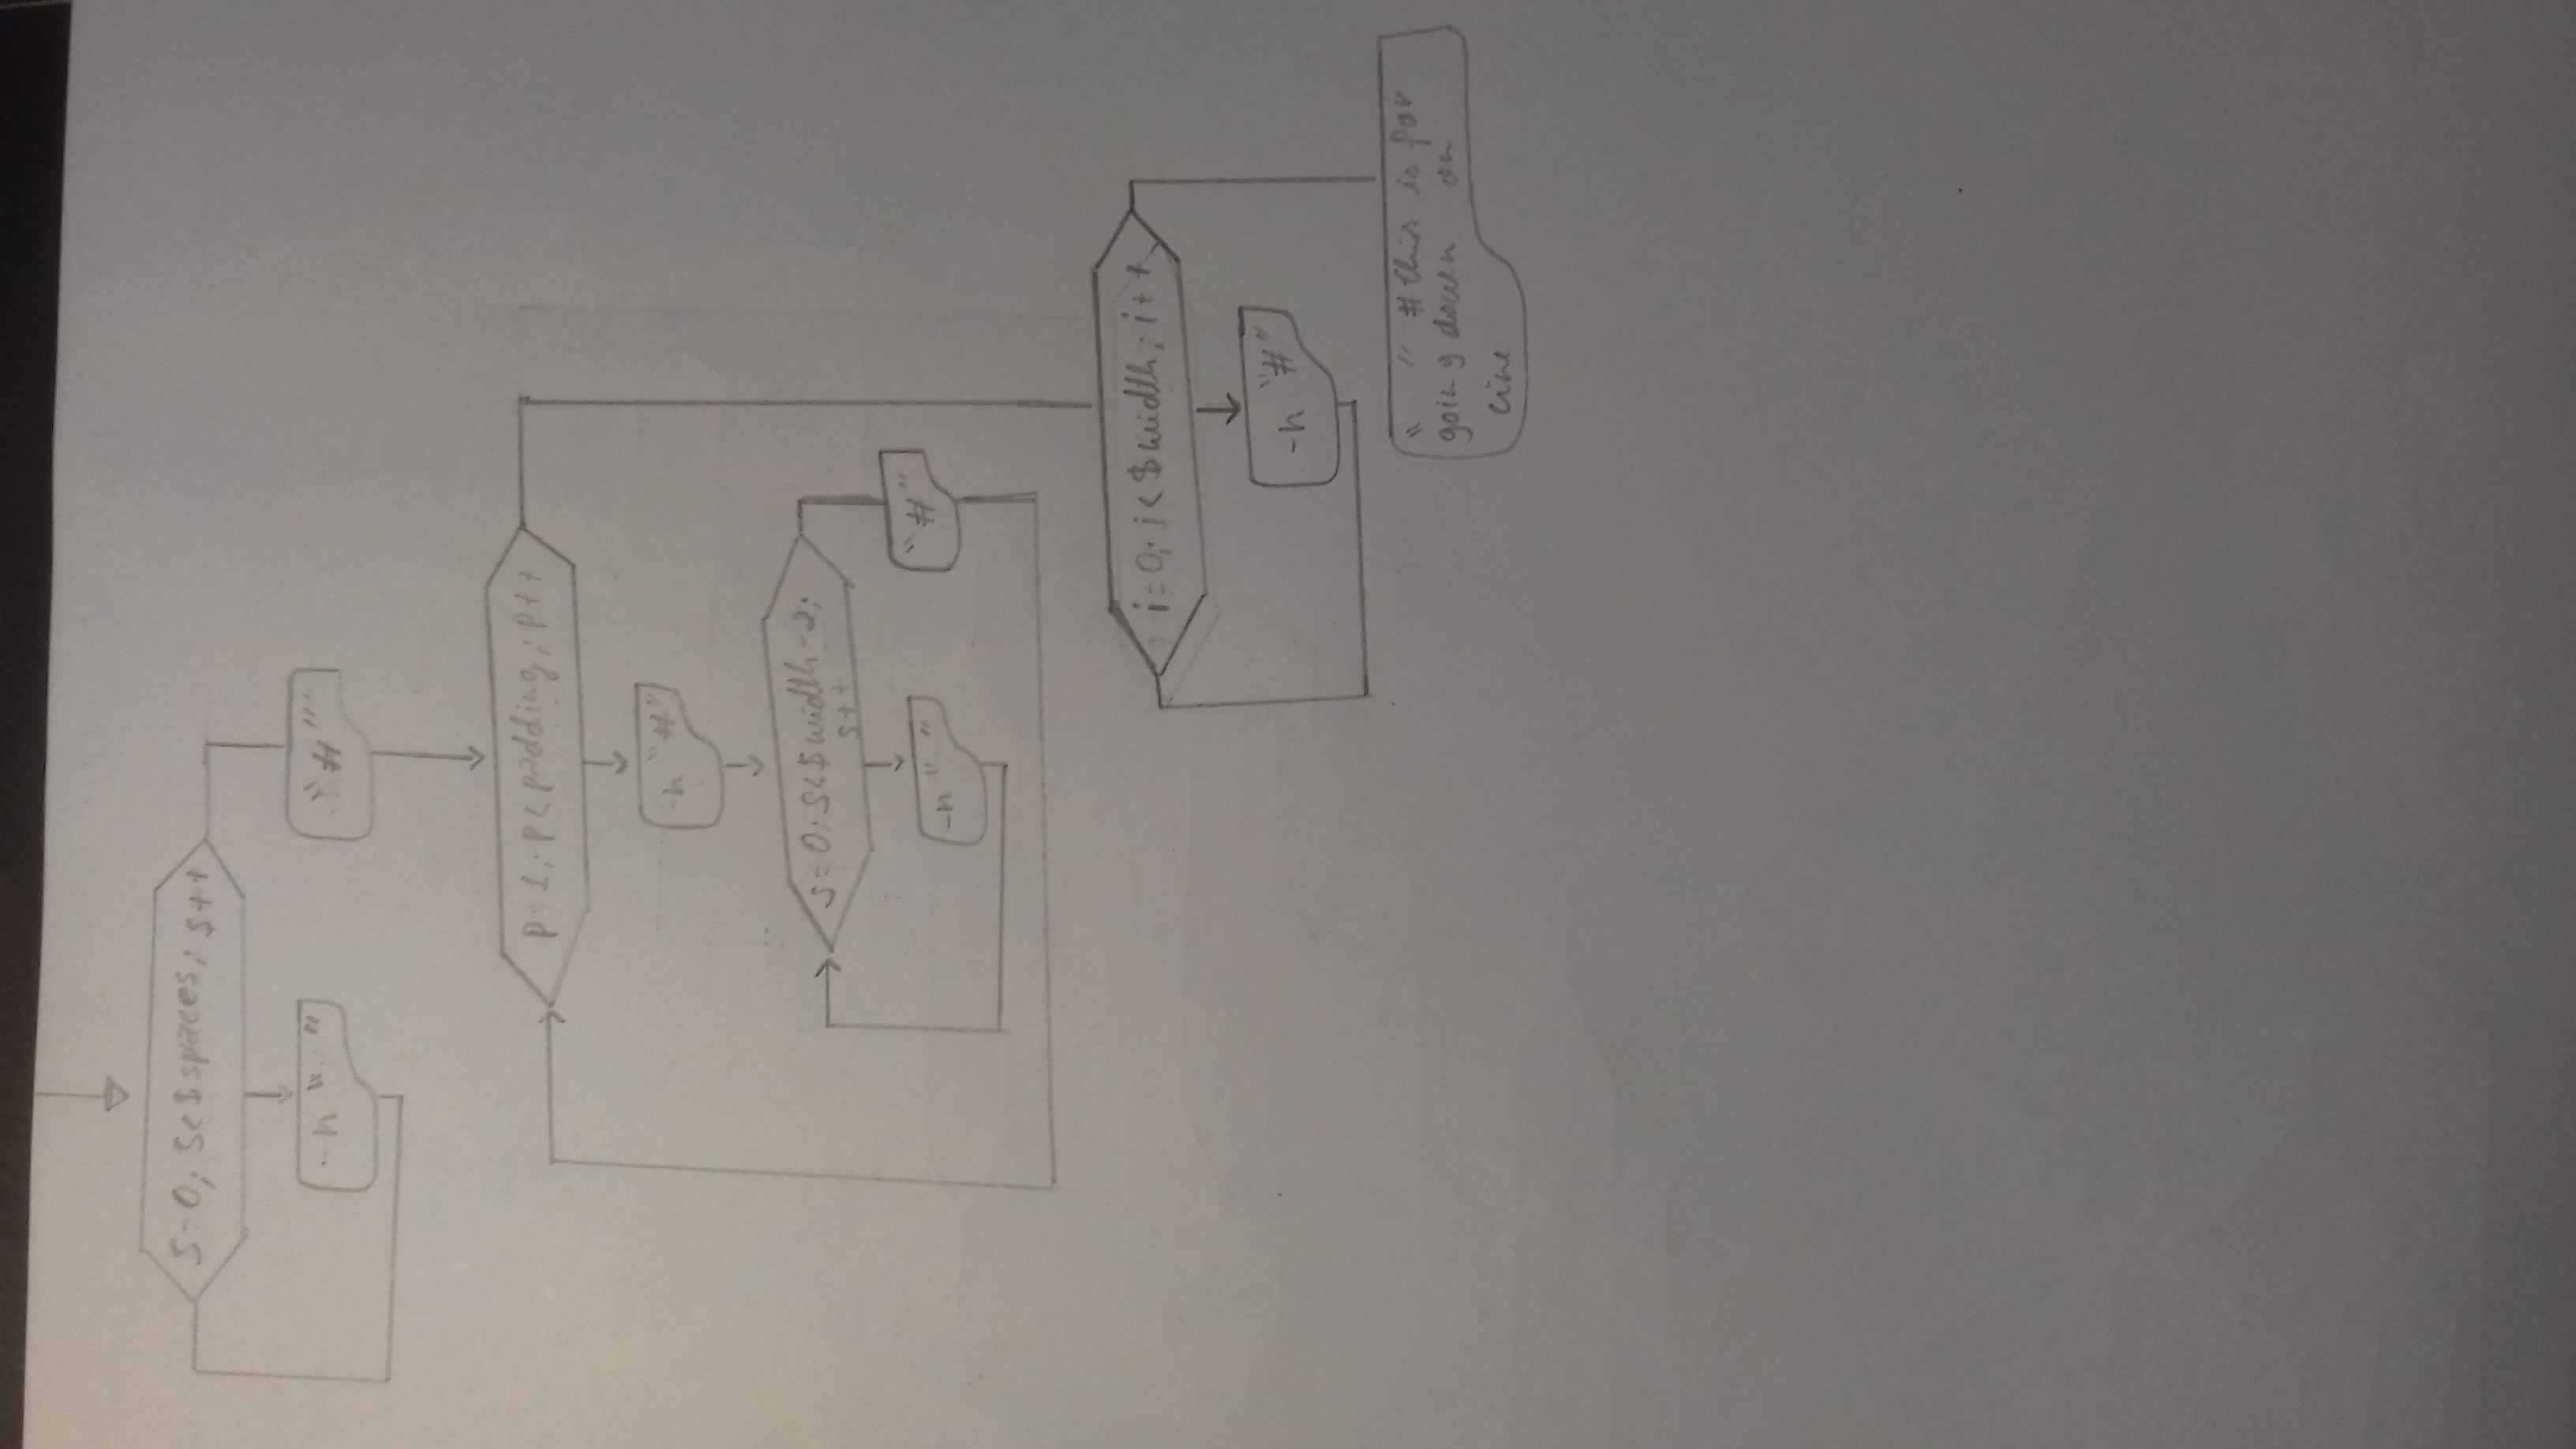 S=0; S<$spaces; s++
-n " "
"#"
p=1; p<padding; p++
-n "#"
s=0; s<$width-2;
s++
-n " "
"#"
i=0; i<$width; i++
-n "#"
" " #this is for
going down on
line